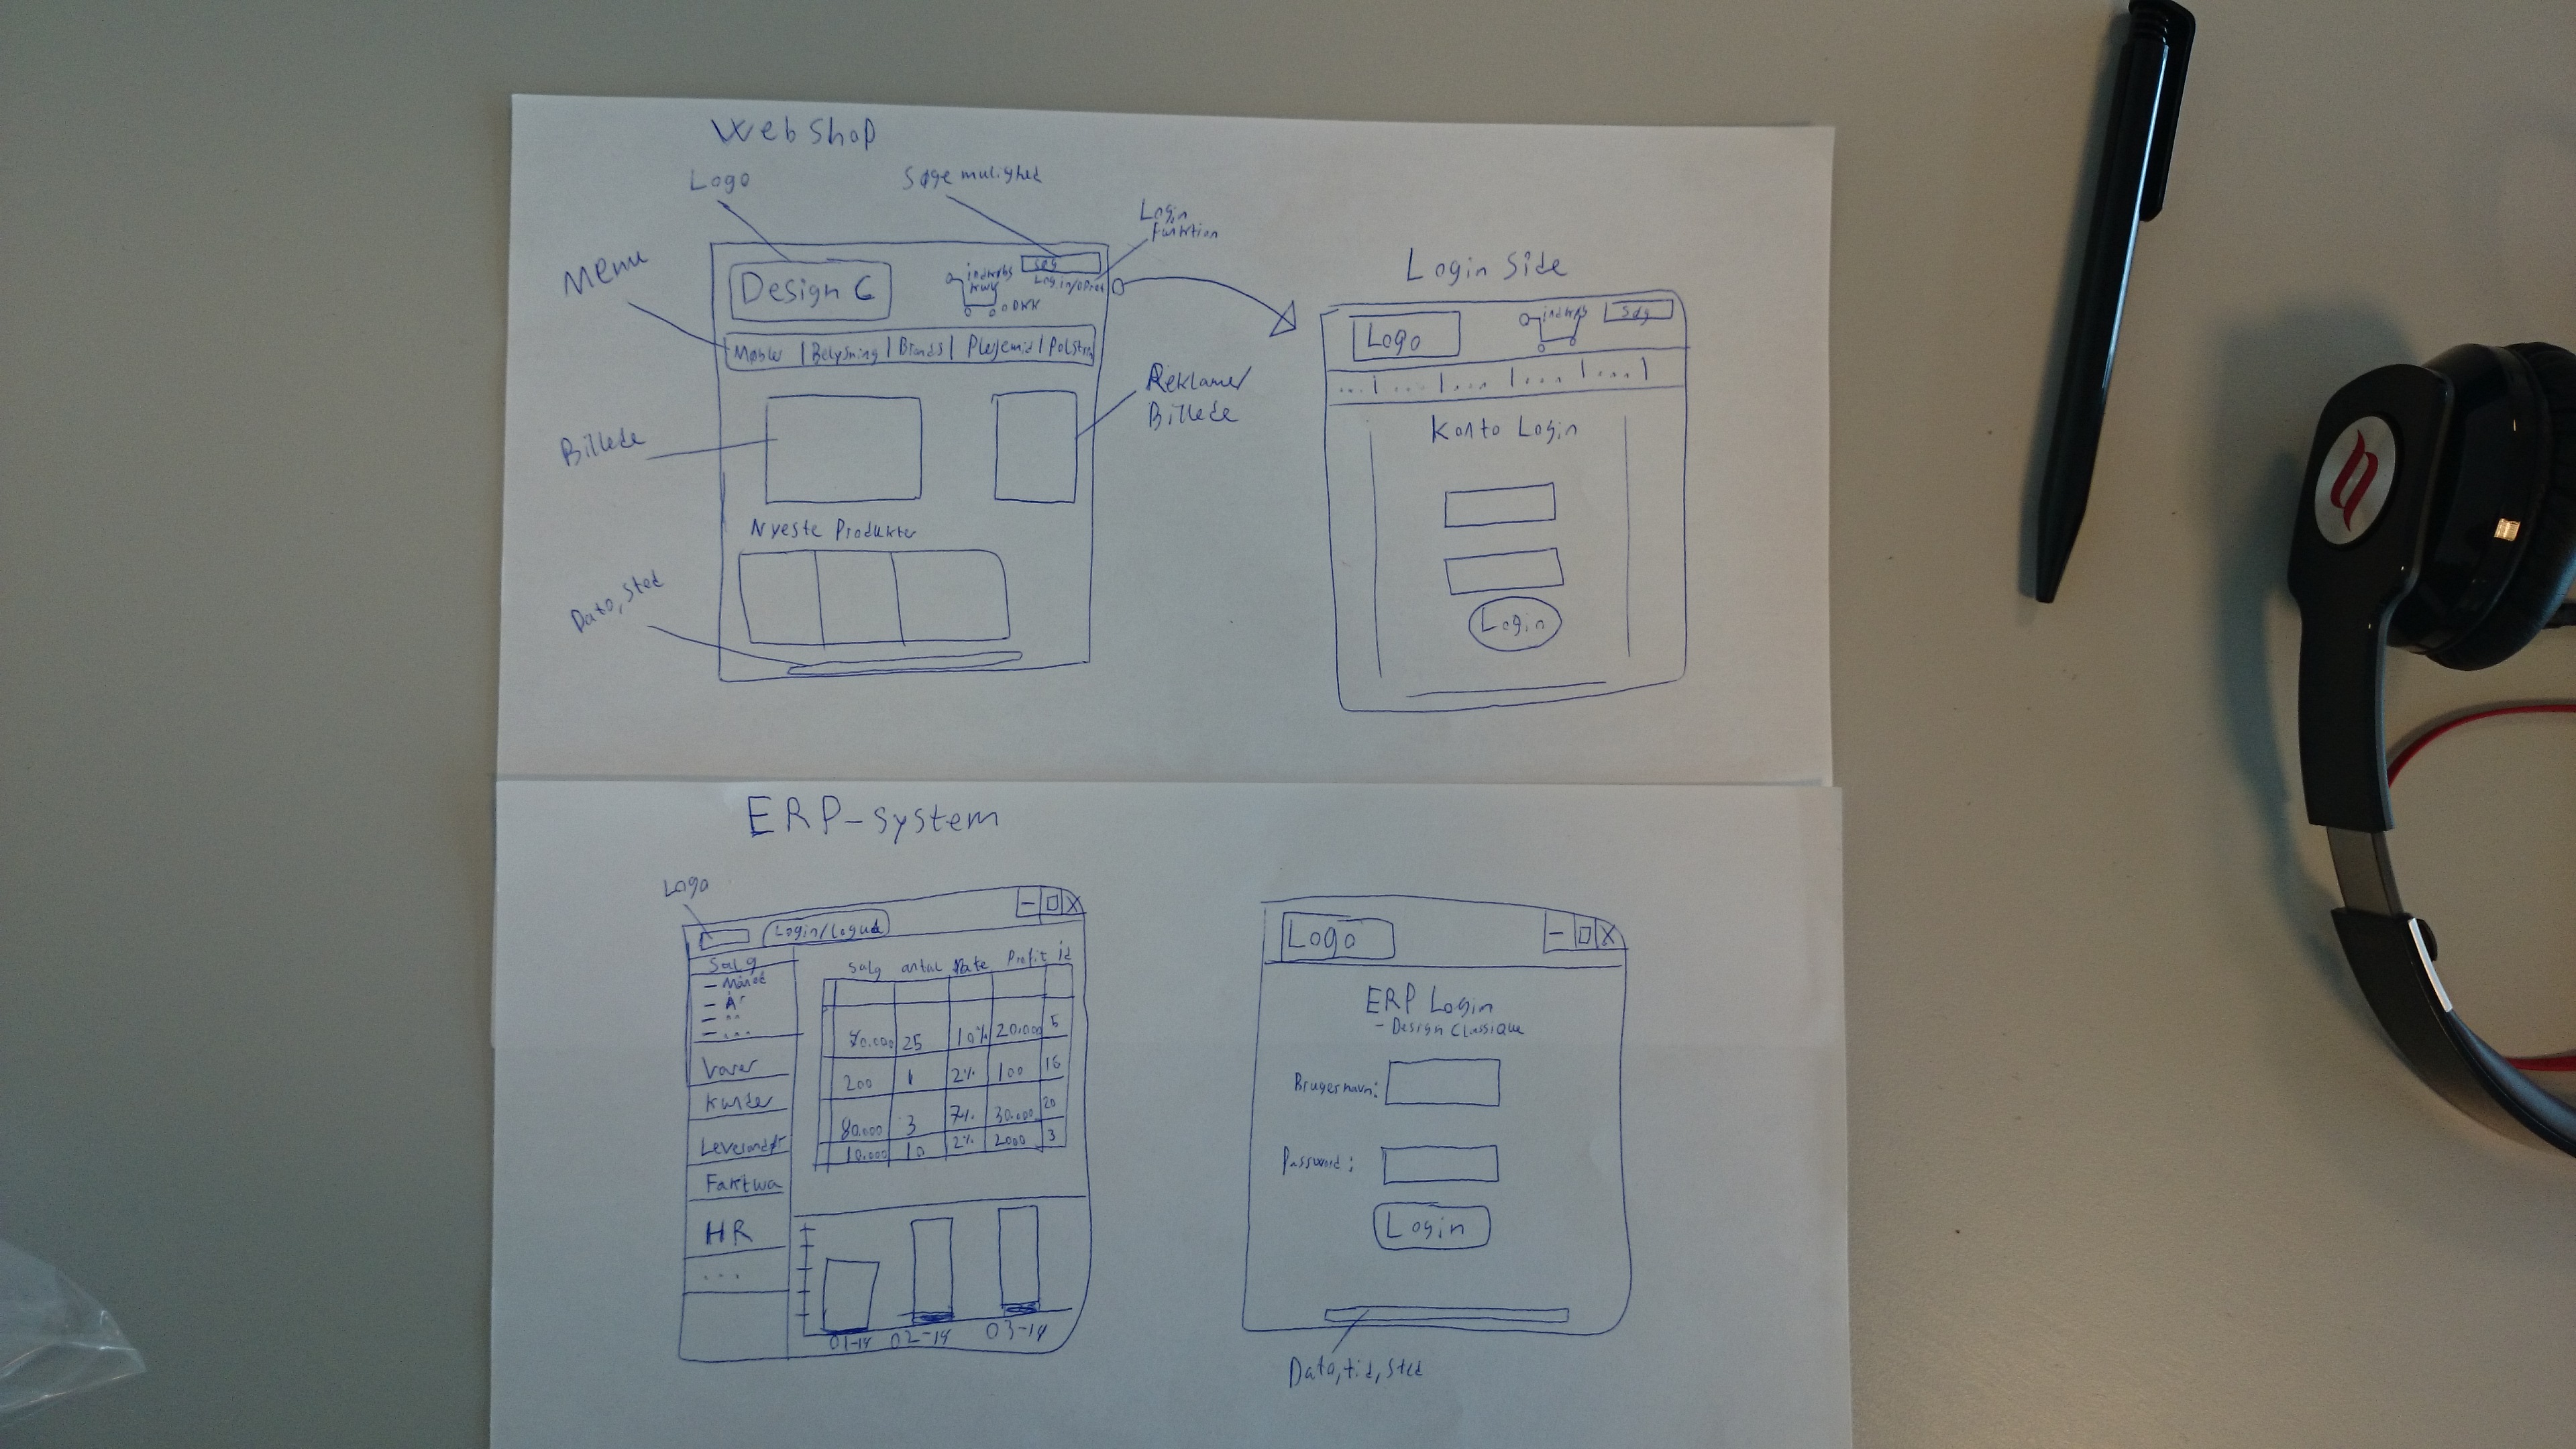 Webshop
Logo
Søge mulighed
Login
Funktion
Menu
Design C
indkøbs
kurv
0 DKK
søg
Møbler | Belysning | Brands | Plejemid | Polstring
Billede
Reklamer
Billede
Nyeste Produkter
Dato, sted
Login Side
Logo
indkøbs
Søg
... | ... | ... | ... | ... |
Konto Login
Login
ERP-system
Logo
Login/Logud
- □ X
Salg
- Måned
- År
- ..
- ...
Varer
Kunder
Leverandør
Faktura
HR
...
Salg antal Rate Profit id
25 10% 20.000 5
200 1 2% 100 16
80.000 3 7% 30.000 20
10.000 10 2% 2000 3
01-14 02-14 03-14
Logo
- □ X
ERP Login
- Design Classique
Brugernavn:
Password:
Login
Dato, tid, sted